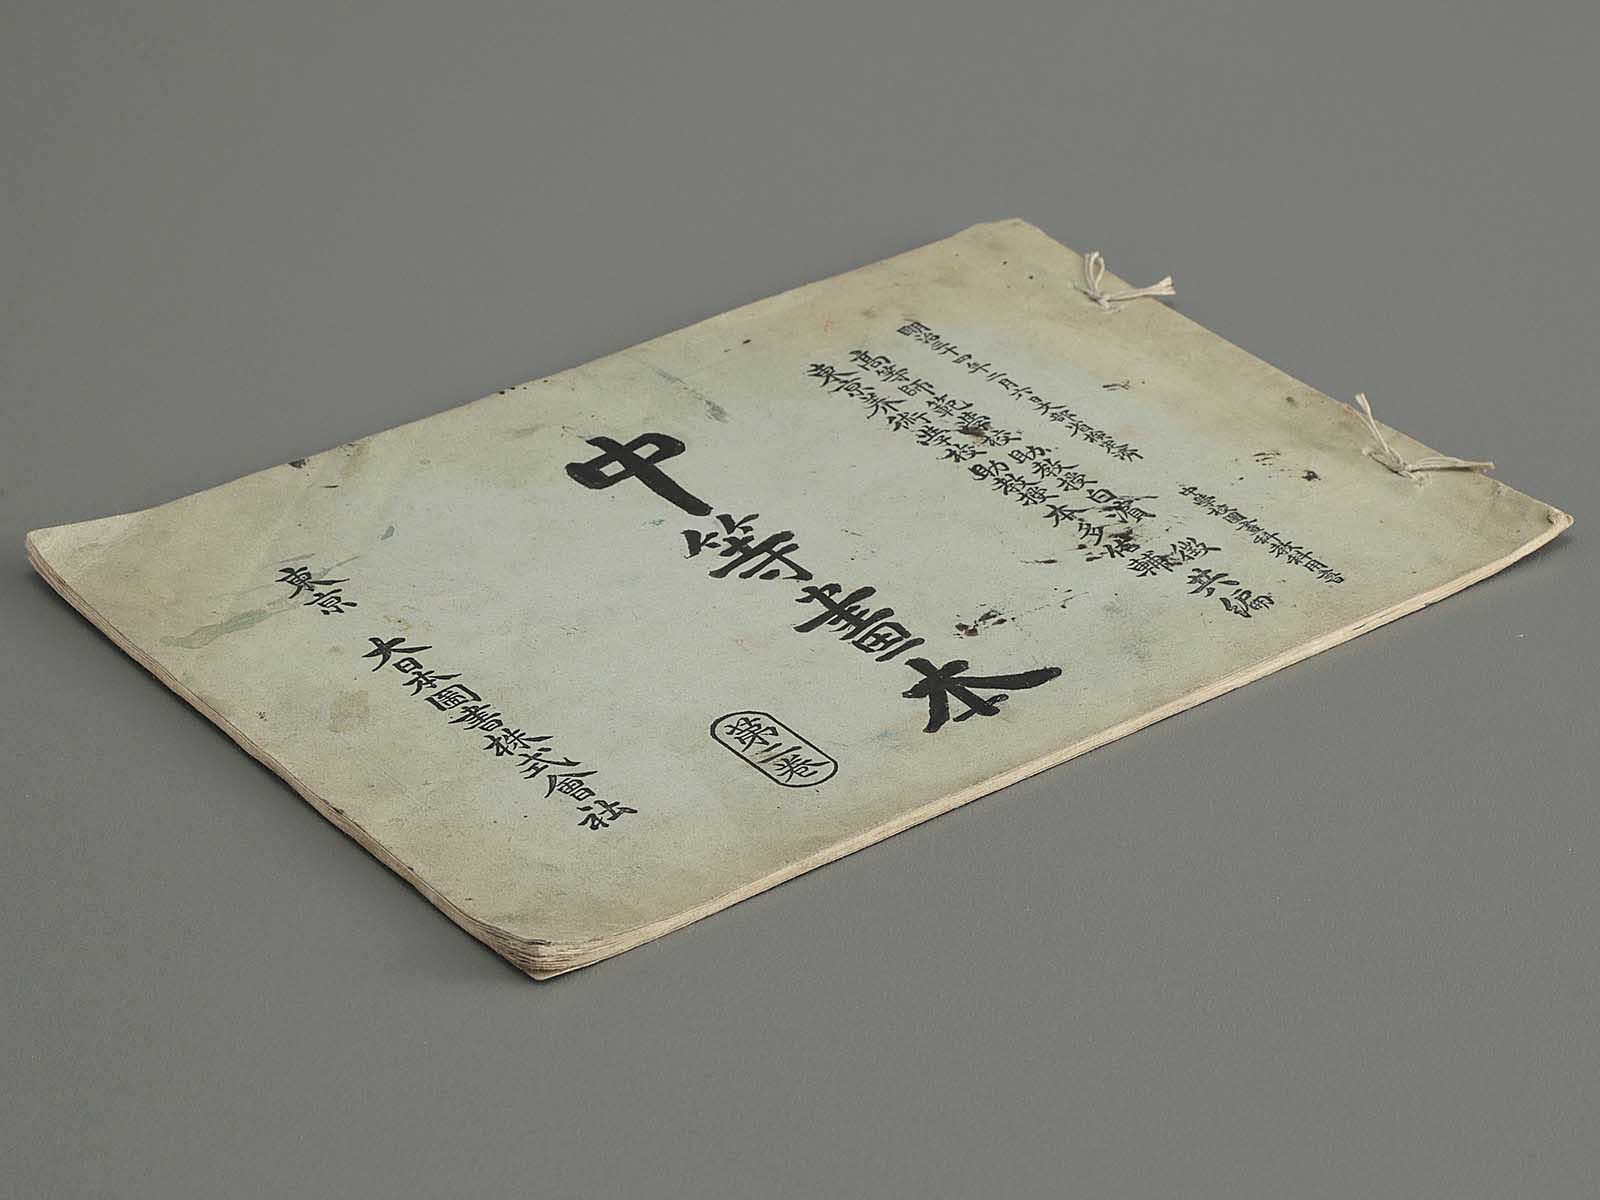 明治三十四年二月六日文部省檢定濟 中學校圖畫科教科用書
高等師範學校助教授白濱 徵
東京美術學校助教授本多佑輔
共編
中等畫本
第二卷
東京 大日本圖書株式會社